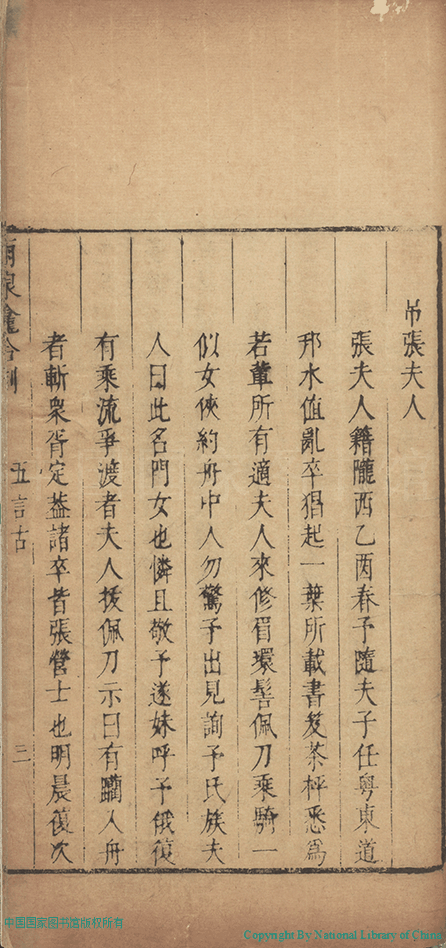 吊張夫人
張夫人籍隴西乙酉春予隨夫子任粤東道
邗水值亂卒猖起一葉所載書笈茶枰悉爲
若輩所有適夫人來修眉環髻佩刀乘騎一
似女俠約舟中人勿驚予出見詢予氏族夫
人曰此名門女也憐且敬予遂妹呼予俄復
有乘流爭渡者夫人拔佩刀示曰有躪入舟
者斬衆胥定葢諸卒昔張營士也明晨復次
五言古
三
中国国家图书馆版权所有
Copyright By National Library of China